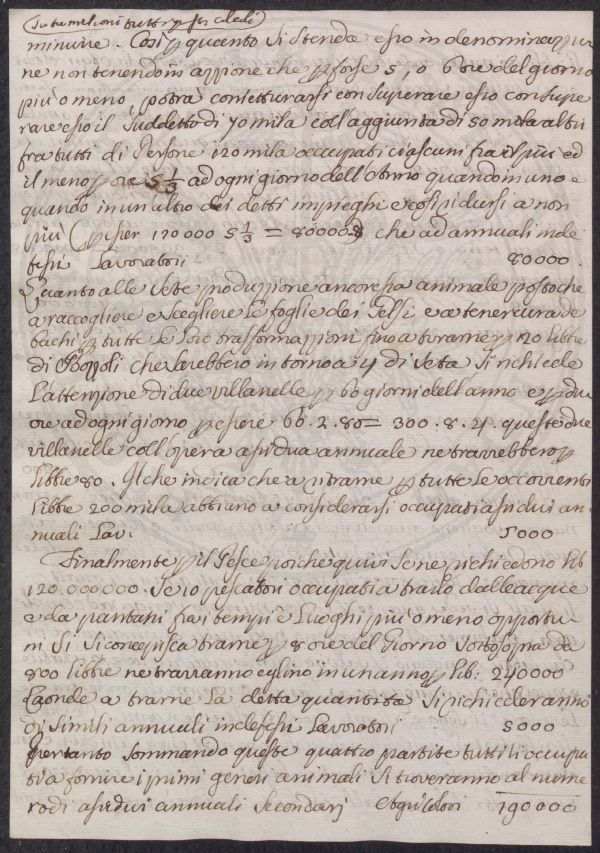 (su tre milioni tutti questi da di)
minuire. Così p quanto si stenda esso in denominazzio
ne non tenendosi azzione che p forse 5, o 6 ore del giorno
più o meno, potrà conietturarsi con superare esso con supe
rare esso il suddetto di 70 mila coll'aggiunta di 50 mila altri
fra tutti di Persone 120 mila occupati ciascuni fra il più ed
il meno p ore 5 1/3 ad ogni giorno dell'Anno quando in uno e
quando in un'altro dei detti impieghi e così ridursi a non
più (p esser 120000 5 1/3 = 80000 8 che ad annuali inde
fessi Lavoratori 80000.
Quanto alle Sete produzzione ancor essa animale postoche
a raccogliere e scegliere le foglie dei Gelsi e a tener cura de
bachi p tutte le loro trasformazzioni fino a trarne p 120 libbre
di Bozzoli che sarebbero intorno a 4 di Seta si richiede
l'attenzione di due villanelle p 60 giorni dell'anno e p due
ore ad ogni giorno p essere 60. 2. 80 = 300. 8. 4. queste due
villanelle coll'opera assidua annuale ne trarrebbero p
libbre 80. Il che indica che a trarne p tutte le occorrenti
libbre 200 mila abbiano a considerarsi occupati assidui an
nuali Lav: 5000
Finalmente p il Pesce poiche quivi se ne richiedono lib
120.000000. Se 10 pescatori occupati a trarlo dalle acque
e da pantani fra i tempi e Luoghi più o meno opportu
ni si concepisca trarne p 8 ore del Giorno sottosopra da
800 libbre ne trarranno eglino in un anno p lib: 240000
Laonde a trarne la detta quantità si richiederanno
di simili annuali indefessi Lavoratori 5000
Pertanto sommando queste quattro partite tutti li occupa
ti a fornire i primi generi animali si troveranno al nume
ro di assidui annuali secondarj Agricoltori 190000